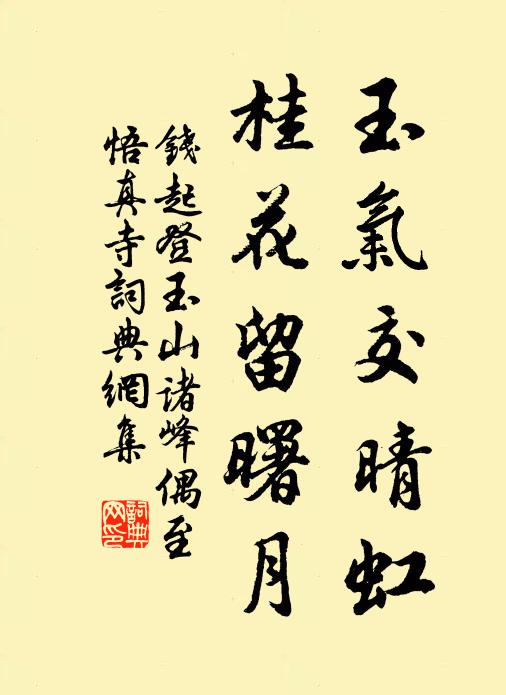 玉氣交晴虹
桂花留曙月
錢起登玉山诸峰偶至
悟真寺詞典網集
詞典网印